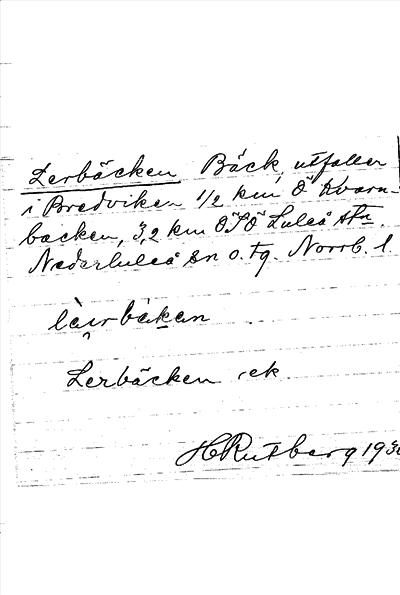 Lerbäcken Bäck, utfaller
i Bredviken 1/2 km Ö Kvarn-
backen, 3,2 km ÖSÖ Luleå stn.
Nederluleå sn o. tg. Norrb. l.
Lerbäcken, ek.
H Rutberg